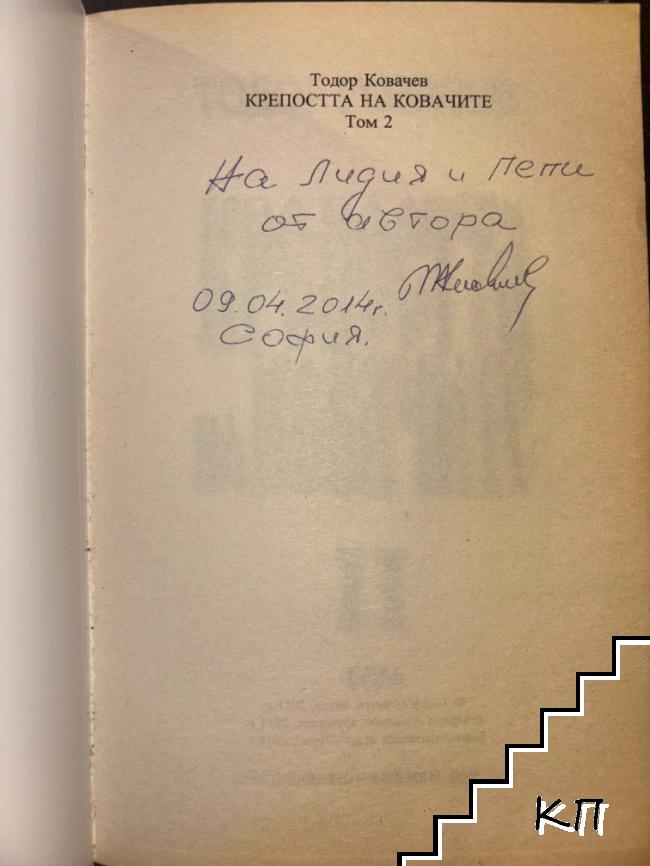 Тодор Ковачев
КРЕПОСТТА НА КОВАЧИТЕ
Том 2
На Лидия и Пепи
от автора
09.04.2014г.
София.
КП